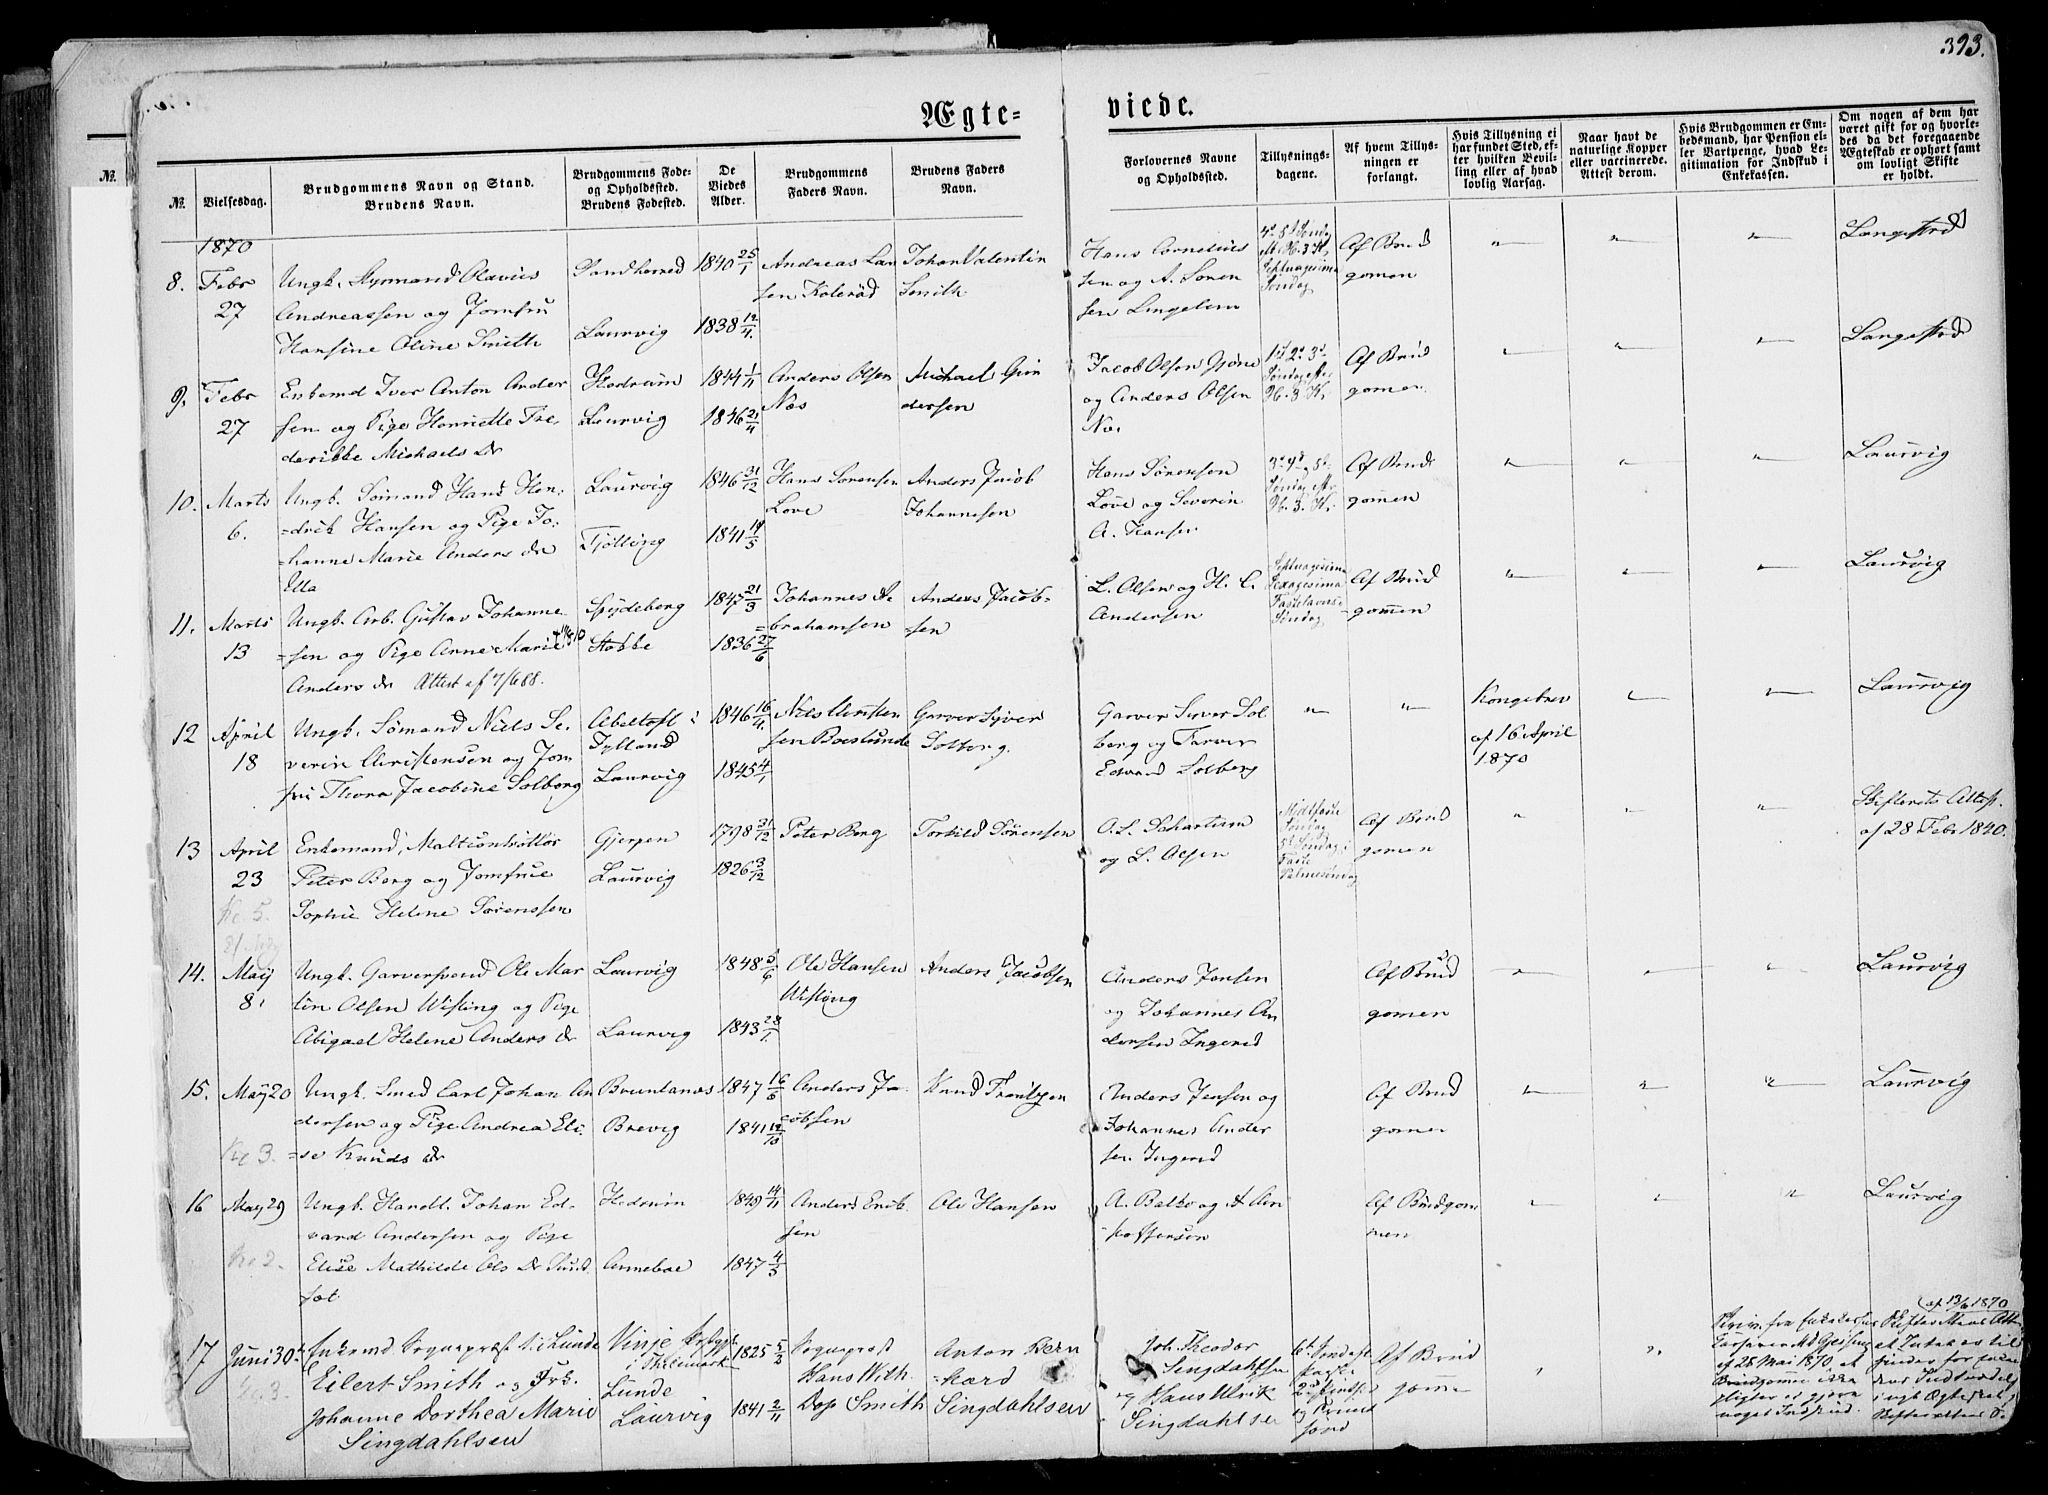 393.
Ægte=
viede.
№.
№.
Vielsesdag.
Brudgommens Navn og Stand.
Brudens Navn.
Brudgommens Føde-
og Opholdssted.
Brudens Fødested.
De
Viedes
Alder.
Brudgommens
Faders Navn.
Brudens Faders
Navn.
Forlovernes Navne
og Opholdssted.
Tillysnings-
dagene.
Af hvem Tillys-
ningen er
forlangt.
Hvis Tillysning ei
har fundet Sted, ef-
ter hvilken Bevil-
ling eller af hvad
lovlig Aarsag.
Naar havt de
naturlige Kopper
eller vaccinerede.
Attest derom.
Hvis Brudgommen er Em-
bedsmand, har Pension el-
ler Vartpenge, hvad Le-
gitimation for Indskud i
Enkekassen.
Om nogen af dem har
været gift for og hvorle-
des da det foregaaende
Ægteskab er ophørt samt
om lovligt Skifte
er holdt.
1870
8.
Febr
27
Ungk. Olavius
Andreassen og Jomfru
Hansine Oline Smith
Sandherred
Laurvig
1840 25/1
1838 12/4
Andreas Lar
sen Kolerød
Johan Valentin
Smith
Hans Cornelius
sen og A. Soren
sen Lingelem
Septuagesima
Søndag
Af Brud
gomen
Langestrd
9.
Febr
27
Enkemd Iver Anton Ander
sen og Pige Henriette Fre,
derikke Michaels Dr
Hedrum
Laurvig
1844 1/11
1846 21/4
Anders Olsen
Næs
Michael Gun
dersen
Jacob Olsen
og Anders Olsen
Næs
1ste 2d 3d
Søndag efter
H. 3 K.
Af Brud
gomen
Langestrd
10.
Marts
6.
Ungk. Sømand Hans Hen,
=drik Hansen og Pige Jo,
=hanne Marie Anders dr
Ula
Laurvig
Tjølling
1846 31/12
1841 19/5
Hans Sørensen
Love
Anders Jacob
Johannesen
Hans Sørensen
Love og Severin
A. Hansen
Søndag efter
H. 3. K.
Af Brud
gommen
Laurvig
11.
Marts
13
Ungk. Arb. Gustav Johanne
=sen og Pige Anne Marie
Anders dr Attest af 7/6 88.
Spydeberg
Stokke
1847 21/3
1836 27/6
Johannes A
=brahamsen
Anders Jacob=
sen
L. Olsen og H. C.
Andersen
Septuagesima
Sexagesima
Fastelavns
Søndag
Af Brud
gommen
Laurvig
12
April
18
Ungk. Sømand Niels Se
verin Christensen og Jom
fru Thora Jacobine Solberg
Abeltoft i
Jylland
Laurvig
1846 16/4
1845 4/1
Niels Christen
sen Boeslunde
Garver Syver
Solberg.
Garver Syver Sol
berg og Farver
Edvard Solberg
Kongebrev
af 16 April
1870
Laurvig
13
April
23
Enkemand,
Peter Berg og Jomfrue
Sophie Helene Sørenssen
Gjerpen
Laurvig
1798 31/12
1826 3/12
Peter Berg
Torkild Sørensen
O. L. Schartum
og L. Olsen
Midtfaste
Søndag
5te Søndag i
Faste
Palmesøndag
Af Brud
gomen
Skifterets Attest
af 28 Febr 1840.
14.
May
8.
Ungk. Garversvend Ole Mar
tin Olsen Wisting og Pige
Abigael Helene Anders dr
Laurvig
Laurvig
1848 5/6
1843 28/1
Ole Hansen
Wisting
Anders Jacobsen
Anders Jensen
og Johannes An
dersen Ingered
Af Brud
gomen
Laurvig
15.
May 20
Ke 3.
Ungk. Smed Carl Johan An
dersen og Pige Andrea Eli,
=se Knuds dr
Brunlanæs
Brevig
1847 16/5
1841
Anders Ja
=cobsen
Knud
Anders Jensen og
Johannes Ander
sen Ingered
Af Brud
gomen
Laurvig
16
May 29
Ke 2.
Ungk. Handl. Johan Ed,
vard Andersen og Pige
Elise Mathilde Ols Dr Sund
set
Hedrum
Anneboe
1849 14/11
1847 4/3
Anders Erik
sen
Ole Hansen
A. Balke og
Af Brudgom
men
Laurvig
17
Juni 30te
Ke. 3.
Enkemd Sognepræst til Lunde
Eilert Smith og Frk.
Johanne Dorthea Marie
Singdahlsen
Vinje
i Thelemark
Lunde
Laurvig
1825 5/2
1841 2/11
Sognepræst
Hans Wilh.
Dop Smith
Anton Bern
=hard
Singdahlsen
Joh. Theodor
Singdahlsen
og Hans Ulrik
Singdahlsen
Af Brud
gomme
af 28 Mai 1870 at
Brudgommen ikke
pligter at gjøre
noget Indskud.
af 13/6 1870